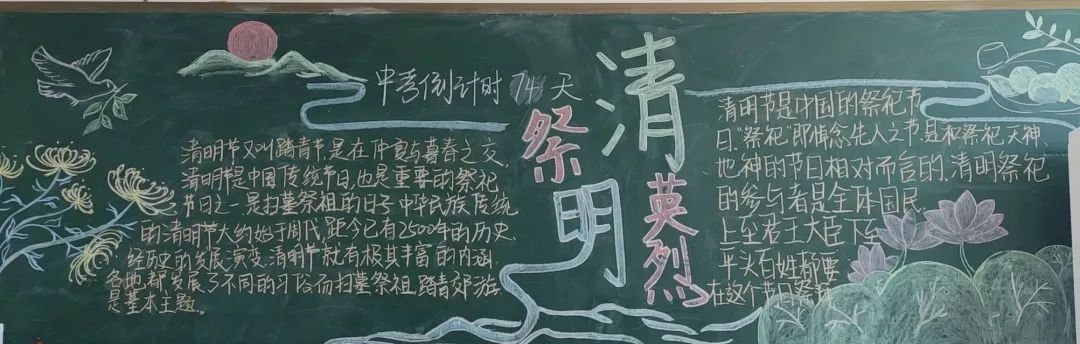 中考倒计时74天
清明
祭
英烈
清明节又叫踏青节,是在仲春与暮春之交,
清明节是中国传统节日,也是重要的祭祀
节日之一是扫墓祭祖的日子中华民族传统
的清明节大约始于周代,距今已有2500年的历史
经历史的发展演变,清明节就有极其丰富的内涵
各地都发展了不同的习俗而扫墓祭祖,踏青郊游
是基本主题。
清明节是中国的祭祀节
日."祭祀"即悼念先人之节,是和祭祀天神、
地神的节日相对而言的.清明祭祀
的参与者是全体国民
上至君王大臣下至
平头百姓都要
在这个节日祭